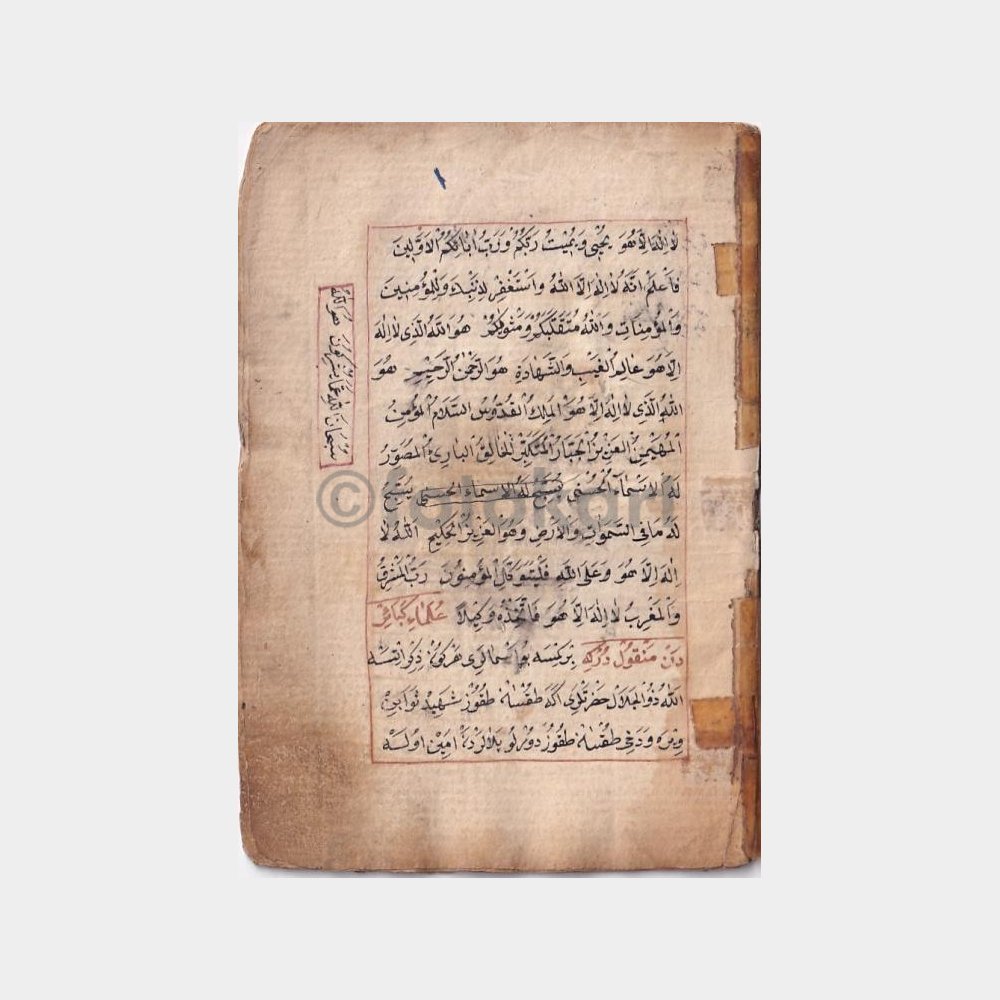 لا اله الا هو يحيى ويميت ربكم ورب ابائكم الاولين
فاعلم انه لا اله الا الله واستغفر لذنبك وللمؤمنين
والمؤمنات والله متقلبكم ومثويكم هو الله الذى لا اله
الا هو عالم الغيب والشهادة هو الرحمن الرحيم هو
الله الذى لا اله الا هو الملك القدوس السلام المؤمن
المهيمن العزيز الجبار المتكبر الخالق البارئ المصور
له الاسماء الحسنى يسبح له الاسماء الحسنى يسبح
له ما فى السموات والارض وهو العزيز الحكيم الله لا
اله الا هو وعلى الله فليتوكل المؤمنون رب المشرق
والمغرب لا اله الا هو فاتخذه وكيلا علماء كبائر
دن منقول دركه بر كمسه بو اسمالرى هر كون ذكر ايتسه
الله ذو الجلال حضرتلرى اكا طقسان طقوز شهيد ثوابن
ويره ودخى طقسان طقوز دورلو بلالردن امين اولسه
سبحان الله عما يشركون هو الله
©fotokart